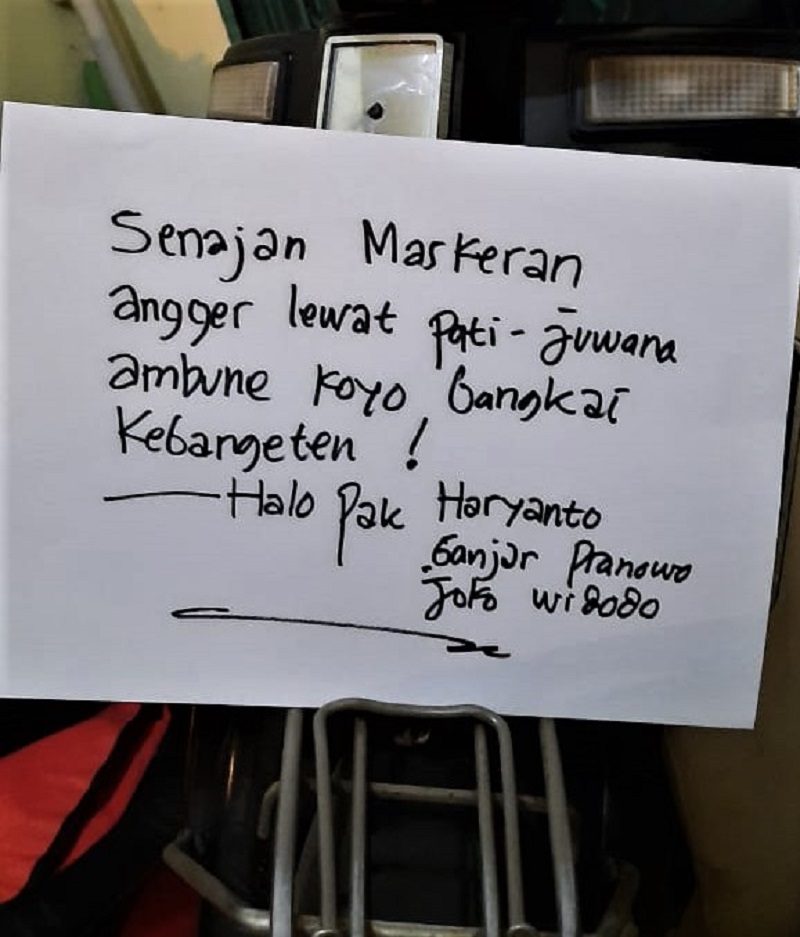 Senajan Maskeran
angger lewat Pati-Juwana
ambune koyo bangkai
Kebangeten !
Halo Pak Haryanto
Ganjar Pranowo
Joko wi8080